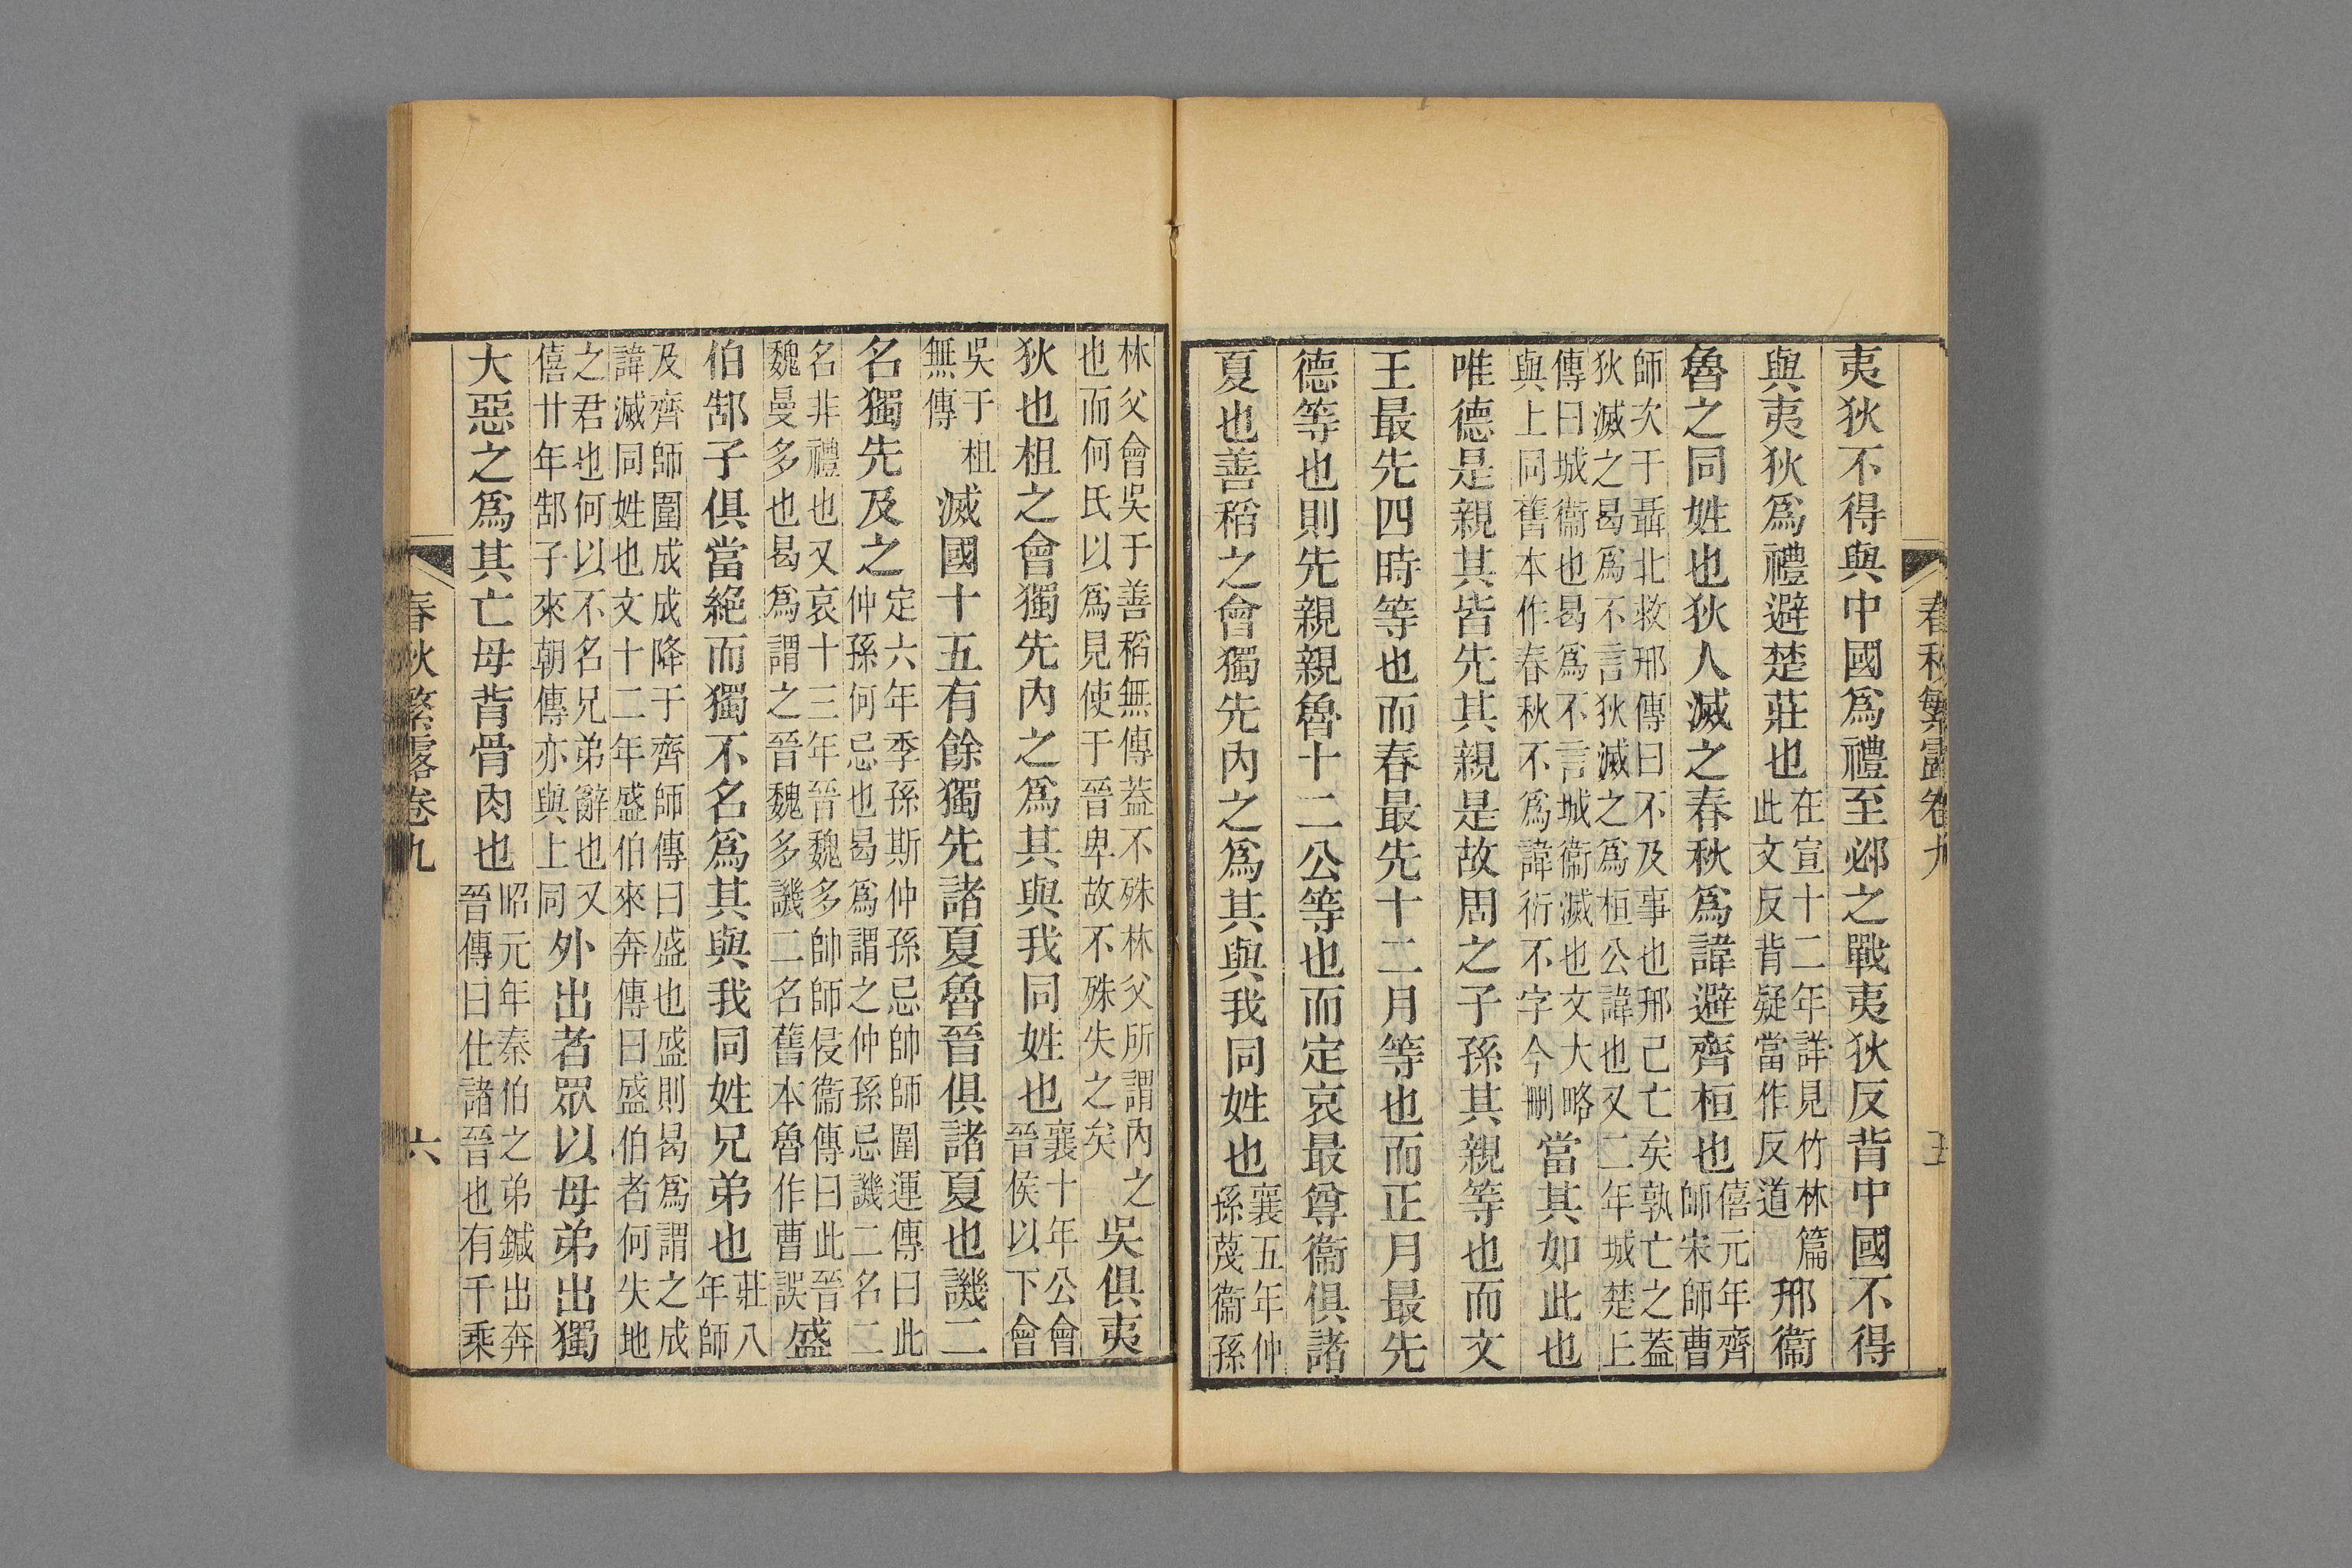 春秋繁露卷九
五
夷狄不得與中國爲禮至邲之戰夷狄反背中國不得
與夷狄爲禮避楚莊也
在宣十二年詳見竹林篇
此文反背疑當作反道
邢衞
魯之同姓也狄人滅之春秋爲諱避齊桓也
僖元年齊
師宋師曹
師次于聶北救邢傳曰不及事也邢已亡矣孰亡之蓋
狄滅之曷爲不言狄滅之爲桓公諱也又二年城楚上
傳曰城衞也曷爲不言城衞滅也文大略
與上同舊本作春秋不爲諱衍不字今刪
當其如此也
唯德是親其皆先其親是故周之子孫其親等也而文
王最先四時等也而春最先十二月等也而正月最先
德等也則先親親魯十二公等也而定哀最尊衞俱諸
夏也善稻之會獨先內之爲其與我同姓也
襄五年仲
孫蔑衞孫
林父會吳于善稻無傳蓋不殊林父所謂內之
也而何氏以爲見使于晉卑故不殊失之矣
吳俱夷
狄也柤之會獨先內之爲其與我同姓也
襄十年公會
晉侯以下會
吳于柤
無傳
滅國十五有餘獨先諸夏魯晉俱諸夏也譏二
名獨先及之
定六年季孫斯仲孫忌帥師圍運傳曰此
仲孫何忌也曷爲謂之仲孫忌譏二名二
名非禮也又哀十三年晉魏多帥師侵衞傳曰此晉
魏曼多也曷爲謂之晉魏多譏二名舊本魯作曹誤
盛
伯郜子俱當絕而獨不名爲其與我同姓兄弟也
莊八
年師
及齊師圍成成降于齊師傳曰盛也盛則曷爲謂之成
諱滅同姓也文十二年盛伯來奔傳曰盛伯者何失地
之君也何以不名兄弟辭也又
僖廿年郜子來朝傳亦與上同
外出者眾以母弟出獨
大惡之爲其亡母背骨肉也
昭元年秦伯之弟鍼出奔
晉傳曰仕諸晉也有千乘
春秋繁露卷九
六